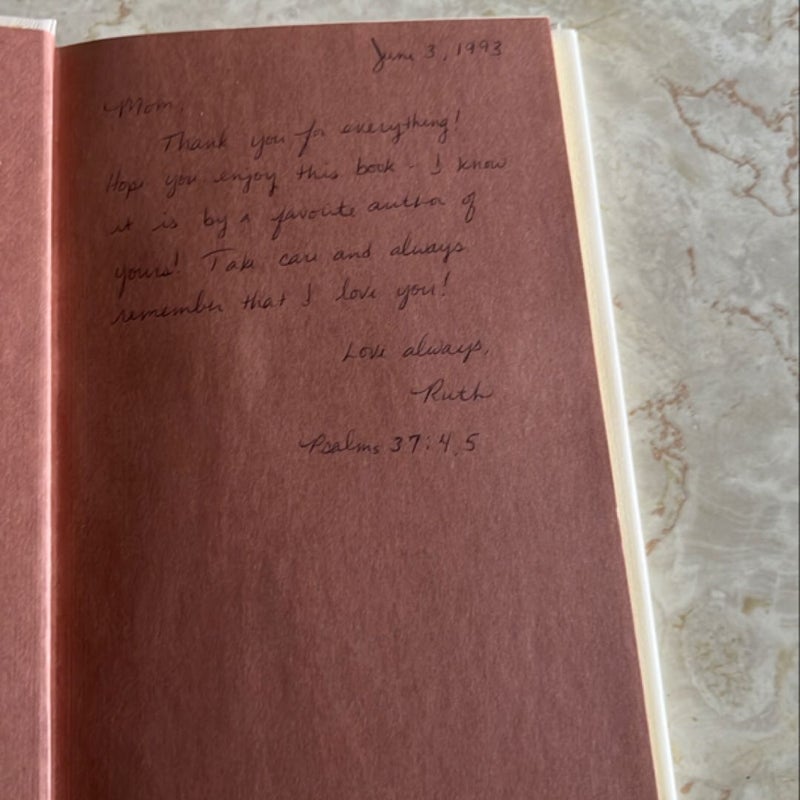 June 3, 1993
Mom,
Thank you for everything!
Hope you enjoy this book - I know
it is by a favorite author of
yours! Take care and always
remember that I love you!
Love always,
Ruth
Psalms 37:4,5